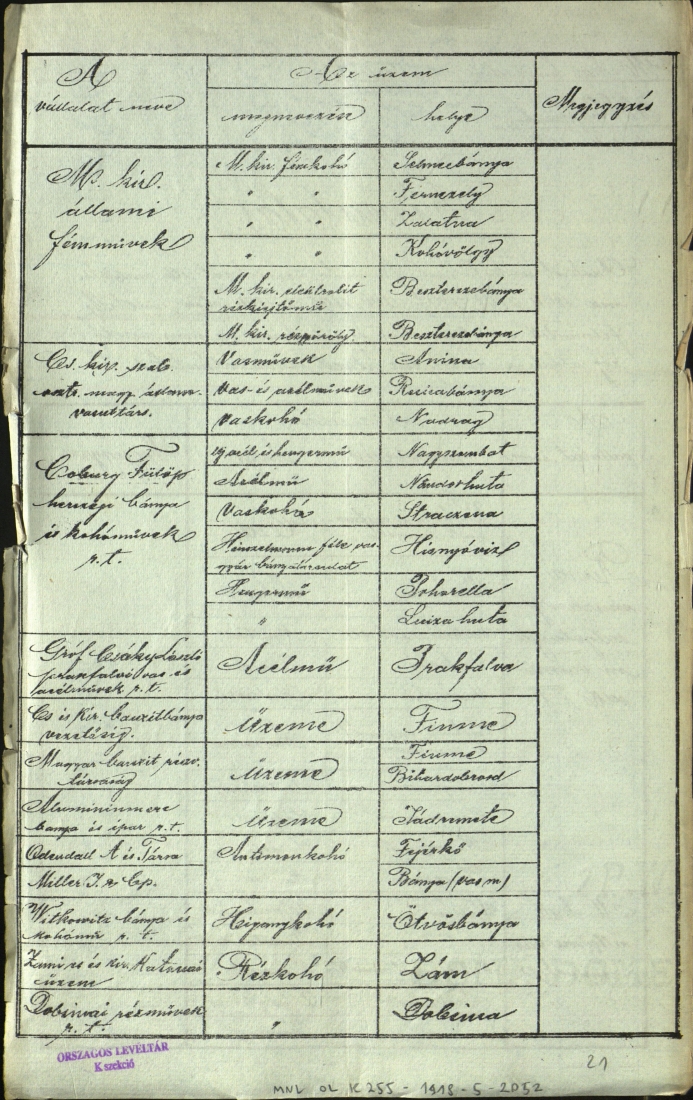 A vállalat neve
Az üzem
megnevezése
helye
Megjegyzés
M. kir. állami fémművek
M. kir. fémkohó
Selmecbánya
" "
Fernezely
" "
Zalatna
" "
Kohóvölgy
M. kir. electrolit
rézkiejtőmű
Besztercebánya
M. kir. rézpöröly
Beszterczebánya
Cs. kir. szab.
osztr. magy. állam-
vasuttárs.
Vasművek
Anina
Vas- és acélművek
Resicabánya
Vaskohó
Nadrag
Coburg Fülöp
herzegi bánya
és kohóművek
r. t.
acél és hengermű
Nagyszombat
Acélmű
Nándorhuta
Vaskohó
Straczena
féle vas-
gyár bányatársulat
Hisnyóviz
Hengermű
Pohorella
"
Luiza huta
Gróf Csáky László
prakfalvi vas és
acélművek r. t.
Acélmű
Prakfalva
Cs és Kir. bauxitbánya
vezetőség.
Üzeme
Fiume
Magyar bauxit részv.
társaság
Üzeme
Fiume
Bihardobrosd
Aluminiumerc
bánya és ipar r. t.
Üzeme
Jádremete
Odendall A és Társa
Antimonkohó
Fejérkő
Miller J. & Cp.
Bánya (vas m)
Witkowitz bánya és
kohómű r. t.
Higanykohó
Ötvösbánya
Zámi cs és kir. Katonai
üzem
Rézkohó
Zám
Dobsinai rézművek
r. t.
"
Dobsina
ORSZÁGOS LEVÉLTÁR
K szekció
21
MNL OL K 255 - 1918 - 5 - 2052